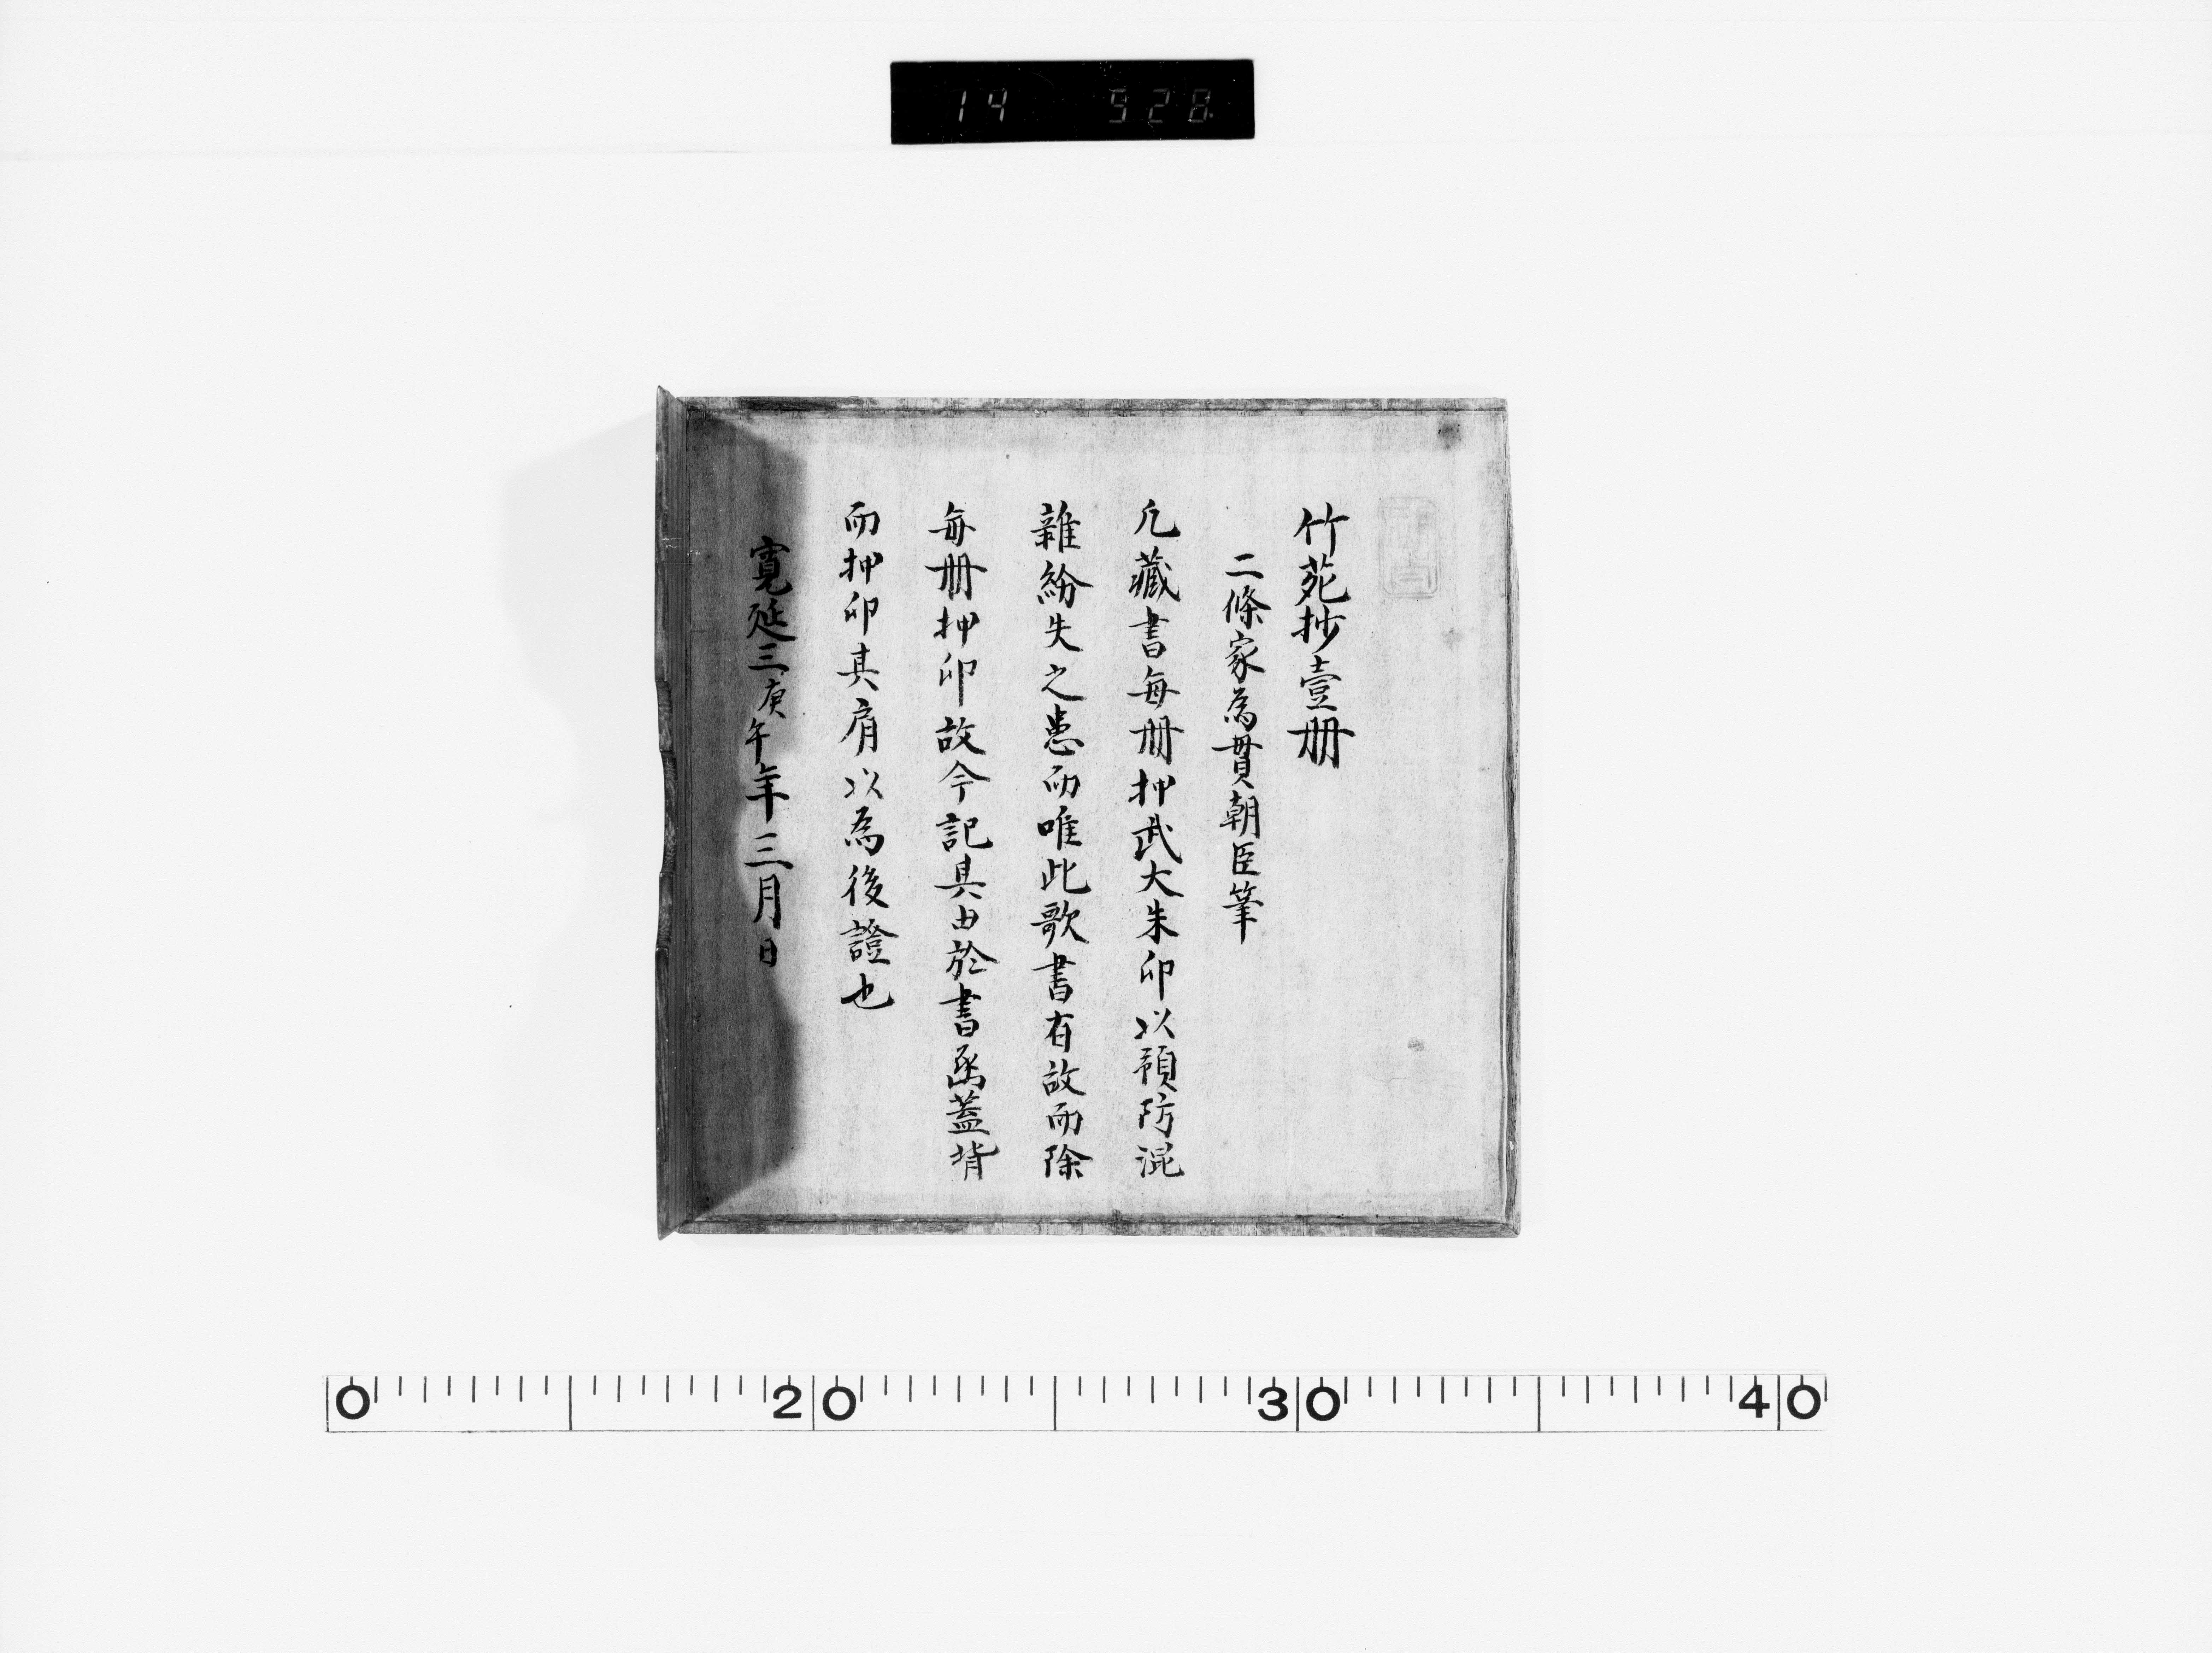 14 528
竹苑抄壹册
二條家為貫朝臣筆
凡藏書每册押武大朱印以預防混
雜紛失之患而唯此歌書有故而除
每册押印故今記其由於書函蓋背
而押印其肩以為後證也
寛延三庚午年三月日
0 20 30 40